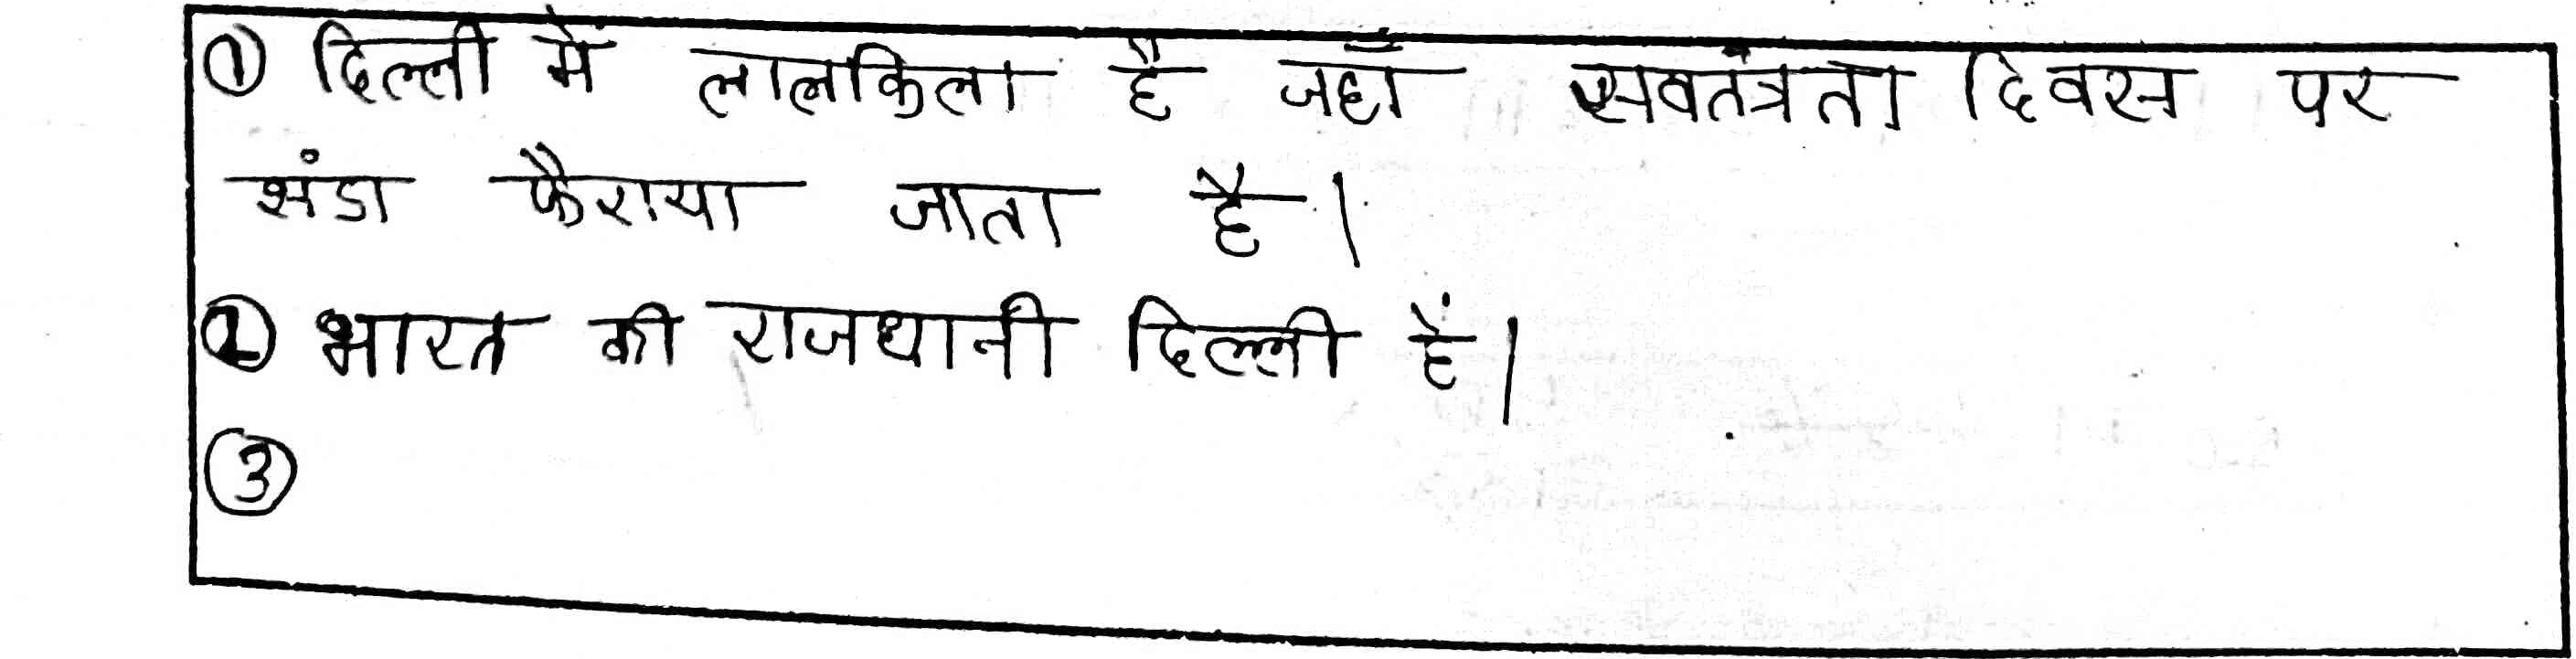 ① दिल्ली में लालकिला है जहाँ सवतंत्रता दिवस पर
झंडा फैराया जाता है।
② भारत की राजधानी दिल्ली हैं।
③